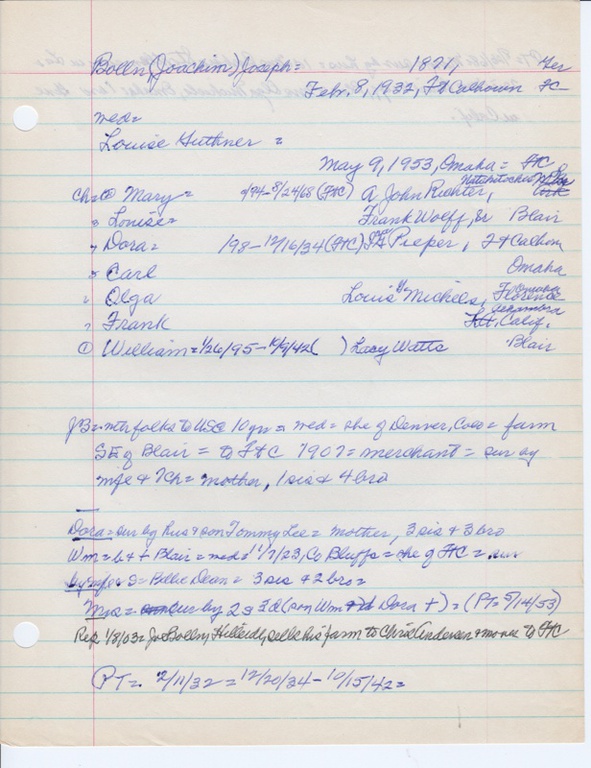 Bolln (Joachim) Joseph = 1871, Ger
Febr. 8, 1932, Ft Calhoun FC
med =
Louise Guthner =
May 9, 1953, Omaha = FtC
Ch = Mary = /94-8/24/68 (FtC) A John Richter,
Louise = Frank Wolff, Sr Blair
Dora = 198-12/16/34 (FtC) Pieper, Ft Calhoun
Carl Omaha
Olga Louis Michels, Florence Omaha
Frank Alhambra Calif.
① William = 1/26/95-10/9/42 ( ) Lacy Watts Blair
JB = folks to USC 10 yr = med = she of Denver, Colo = farm
SE of Blair = to FtC 1907 = merchant = sur by
wife & 7 Ch = mother, 1 sis & 4 bro
Dora = sur by hus & son Tommy Lee = mother, 3 sis & 3 bro
Wm = b + Blair = med = 11/7/23, Co Bluffs = she of FtC = sur
by wife & D = Billie Dean = 3 sis & 2 bro =
Mrs = sur by 2 S 3 d (son Wm Dora +) = (PT = 5/14/53)
Rep 1/8/03 = Jo Bolln, sells his farm to Chris Andersen & move to FtC
PT = 2/11/32 = 12/20/34 - 10/15/42 =